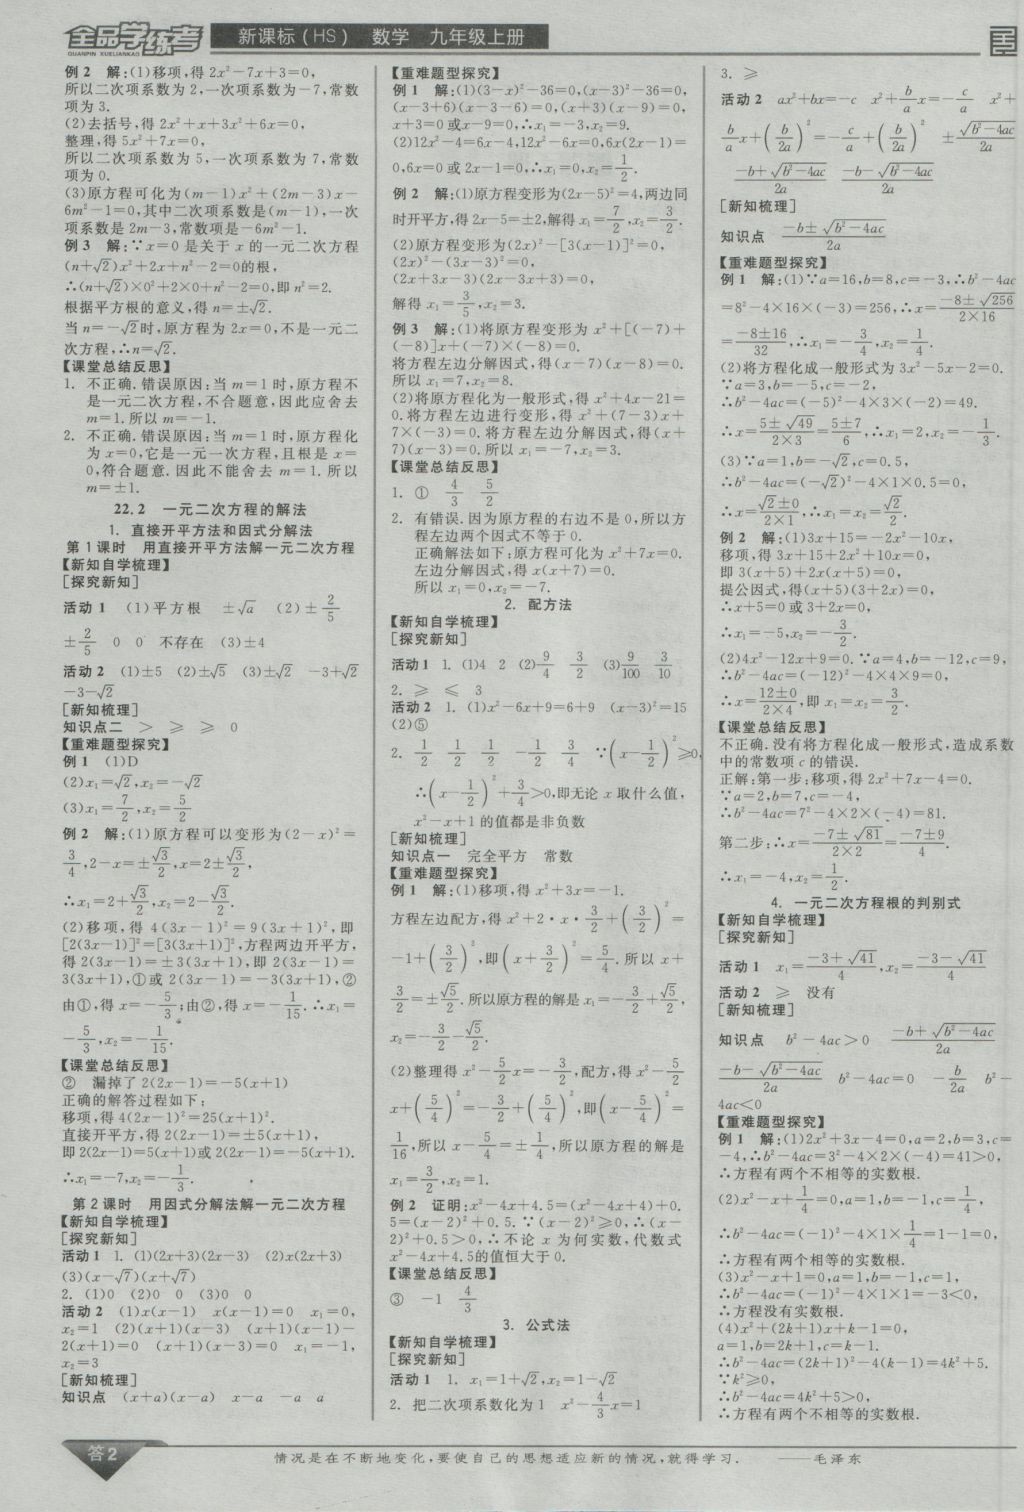 全品学练考
QUANPIN XUELIANKAO
新课标(HS) 数学 九年级上册
例2 解:(1)移项,得 2x²-7x+3=0,
所以二次项系数为2,一次项系数为-7,常数
项为3.
(2)去括号,得 2x²+x+3x²+6x=0,
整理,得 5x²+7x=0,
所以二次项系数为5,一次项系数为7,常数
项为0.
(3)原方程可化为(m-1)x²+(2m-3)x-
6m²-1=0,其中二次项系数是(m-1),一次
项系数是2m-3,常数项是-6m²-1.
例3 解:∵x=0是关于x的一元二次方程
(n+√2)x²+2x+n²-2=0的根,
∴(n+√2)×0²+2×0+n²-2=0,即n²=2.
根据平方根的意义,得n=±√2.
当n=-√2时,原方程为2x=0,不是一元二
次方程,∴n=√2.
【课堂总结反思】
1. 不正确.错误原因:当m=1时,原方程不
是一元二次方程,不合题意,因此应舍去
m=1.所以m=-1.
2. 不正确.错误原因:当m=1时,原方程化
为x=0,它是一元一次方程,且根是x=
0,符合题意.因此不能舍去m=1.所以
m=±1.
22.2 一元二次方程的解法
1. 直接开平方法和因式分解法
第1课时 用直接开平方法解一元二次方程
【新知自学梳理】
[探究新知]
活动1 (1)平方根 ±√a (2)±2/5
±2/5 0 0 不存在 (3)±4
活动2 (1)±5 (2)±√5 (3)±√2 -3+√2
-3-√2
[新知梳理]
知识点二 > ≥ ≥ 0
【重难题型探究】
例1 (1)D
(2)x₁=√2,x₂=-√2
(3)x₁=7/2,x₂=5/2
例2 解:(1)原方程可以变形为(2-x)²=
3/4,2-x=±√3/2,x=2±√3/2,
∴x₁=2+√3/2,x₂=2-√3/2.
(2)移项,得 4(3x-1)²=9(3x+1)²,即
[2(3x-1)]²=[3(3x+1)]²,方程两边开平方,
得2(3x-1)=±3(3x+1),即2(3x-1)=
3(3x+1),①或2(3x-1)=-3(3x+1),②
由①,得x=-5/3;由②,得x=-1/15.∴x₁=
-5/3,x₂=-1/15.
【课堂总结反思】
② 漏掉了2(2x-1)=-5(x+1)
正确的解答过程如下:
移项,得4(2x-1)²=25(x+1)².
直接开平方,得2(2x-1)=±5(x+1),
即2(2x-1)=5(x+1)或2(2x-1)=-5(x+1).
∴x₁=-7,x₂=-1/3.
第2课时 用因式分解法解一元二次方程
【新知自学梳理】
[探究新知]
活动1 1. (1)(2x+3)(2x-3) (2)x(2x+3)
(3)(x-√7)(x+√7)
2. (1)0 (2)0 0 (3)0 0
活动2 (1)x(x-1) x(x-1)=0 x₁=0,
x₂=1 (2)(x+1)(x-3) (x+1)(x-1)-
2(x+1)=0 (x+1)(x-3)=0 x₁=-1,
x₂=3
[新知梳理]
知识点 (x+a)(x-a) x-a -a a
【重难题型探究】
例1 解:(1)(3-x)²-36=0,(x-3)²-36=0,
(x-3+6)(x-3-6)=0,(x+3)(x-9)=0,
x+3=0或x-9=0,∴x₁=-3,x₂=9.
(2)12x²-4=6x-4,12x²-6x=0,6x(2x-1)=
0,6x=0或2x-1=0,∴x₁=0,x₂=1/2.
例2 解:(1)原方程变形为(2x-5)²=4,两边同
时开平方,得2x-5=±2,解得x₁=7/2,x₂=3/2.
(2)原方程变形为(2x)²-[3(x-1)]²=0,
(2x)²-(3x-3)²=0,
(2x+3x-3)(2x-3x+3)=0,
解得x₁=3/5,x₂=3.
例3 解:(1)将原方程变形为 x²+[(-7)+
(-8)]x+(-7)×(-8)=0.
将方程左边分解因式,得(x-7)(x-8)=0.
所以x₁=7,x₂=8.
(2)将原方程化为一般形式,得x²+4x-21=
0.将方程左边进行变形,得x²+(7-3)x+
7×(-3)=0.将方程左边分解因式,得(x+
7)(x-3)=0.所以x₁=-7,x₂=3.
【课堂总结反思】
1. ① 4/3 5/2
2. 有错误.因为原方程的右边不是0,所以方
程左边两个因式不等于0.
正确解法如下:原方程可化为x²+7x=0.
左边分解因式,得x(x+7)=0.
所以x₁=0,x₂=-7.
2. 配方法
【新知自学梳理】
[探究新知]
活动1 1. (1)4 2 (2)9/4 3/2 (3)9/100 3/10
2. ≥ ≤ 3
活动2 1. (1)x²-6x+9=6+9 (x-3)²=15
(2)⑤
2. 1/2 1/2 1/2 -1/2 3/4 ∵(x-1/2)²≥0,
∴(x-1/2)²+3/4>0,即无论x取什么值,
x²-x+1的值都是非负数
[新知梳理]
知识点一 完全平方 常数
【重难题型探究】
例1 解:(1)移项,得x²+3x=-1.
方程左边配方,得x²+2·x·3/2+(3/2)²=
-1+(3/2)²,即(x+3/2)²=5/4.所以x+
3/2=±√5/2.所以原方程的解是x₁=-3/2+√5/2,
x₂=-3/2-√5/2.
(2)整理得x²-5/2x=-3/2,配方,得x²-5/2
x+(5/4)²=-3/2+(5/4)²,即(x-5/4)²=
1/16,所以x-5/4=±1/4,所以原方程的解是
x₁=3/2,x₂=1.
例2 证明:x²-4x+4.5=(x²-4x+4)+0.
5=(x-2)²+0.5.∵(x-2)²≥0,∴(x-
2)²+0.5>0,∴不论x为何实数,代数式
x²-4x+4.5的值恒大于0.
【课堂总结反思】
③ -1 4/3
3. 公式法
【新知自学梳理】
[探究新知]
活动1 1. x₁=1+√2,x₂=1-√2
2. 把二次项系数化为1 x²-4/3x=1
3. ≥
活动2 ax²+bx=-c x²+b/a x=-c/a x²+
b/a x+(b/2a)²=-c/a+(b/2a)² ±√(b²-4ac)/2a
(-b+√(b²-4ac))/2a (-b-√(b²-4ac))/2a
[新知梳理]
知识点 (-b±√(b²-4ac))/2a
【重难题型探究】
例1 解:(1)∵a=16,b=8,c=-3,∴b²-4ac
=8²-4×16×(-3)=256,∴x=(-8±√256)/(2×16)
=(-8±16)/32,∴x₁=-3/4,x₂=1/4.
(2)将方程化成一般形式为3x²-5x-2=0.
∵a=3,b=-5,c=-2,
∴b²-4ac=(-5)²-4×3×(-2)=49.
∴x=(5±√49)/(2×3)=(5±7)/6,∴x₁=2,x₂=-1/3.
(3)∵a=1,b=-√2,c=0.5,
∴b²-4ac=(-√2)²-4×1×0.5=0,
∴x=(√2±0)/(2×1),∴x₁=x₂=√2/2.
例2 解:(1)3x+15=-2x²-10x,
移项,得3x+15+2x²+10x=0,
即3(x+5)+2x(x+5)=0,
提公因式,得(x+5)(3+2x)=0,
∴x+5=0或3+2x=0,
∴x₁=-5,x₂=-3/2.
(2)4x²-12x+9=0.∵a=4,b=-12,c=9,
∴b²-4ac=(-12)²-4×4×9=0,
∴x=(12±0)/(2×4),即x₁=x₂=3/2.
【课堂总结反思】
不正确.没有将方程化成一般形式,造成系数
中的常数项c的错误.
正解:第一步:移项,得2x²+7x-4=0.
∵a=2,b=7,c=-4,
∴b²-4ac=7²-4×2×(-4)=81.
第二步:∴x=(-7±√81)/(2×2)=(-7±9)/4.
∴x₁=-4,x₂=1/2.
4. 一元二次方程根的判别式
【新知自学梳理】
[探究新知]
活动1 x₁=(-3+√41)/4,x₂=(-3-√41)/4
活动2 ≥ 没有
[新知梳理]
知识点 b²-4ac>0 (-b+√(b²-4ac))/2a
(-b-√(b²-4ac))/2a b²-4ac=0 -b/2a b²-
4ac<0
【重难题型探究】
例1 解:(1)2x²+3x-4=0,a=2,b=3,c=
-4,∴b²-4ac=3²-4×2×(-4)=41>0,
∴方程有两个不相等的实数根.
(2)x²-x+1/4=0,a=1,b=-1,c=1/4,
∴b²-4ac=(-1)²-4×1×1/4=1-1=0,
∴方程有两个相等的实数根.
(3)x²-x+1=0,a=1,b=-1,c=1,
∴b²-4ac=(-1)²-4×1×1=-3<0,
∴方程没有实数根.
(4)x²+(2k+1)x+k-1=0,
a=1,b=2k+1,c=k-1.
∴b²-4ac=(2k+1)²-4(k-1)=4k²+5.
∵k²≥0,
∴b²-4ac=4k²+5>0,
∴方程有两个不相等的实数根.
答2
情况是在不断地变化,要使自己的思想适应新的情况,就得学习. ——毛泽东